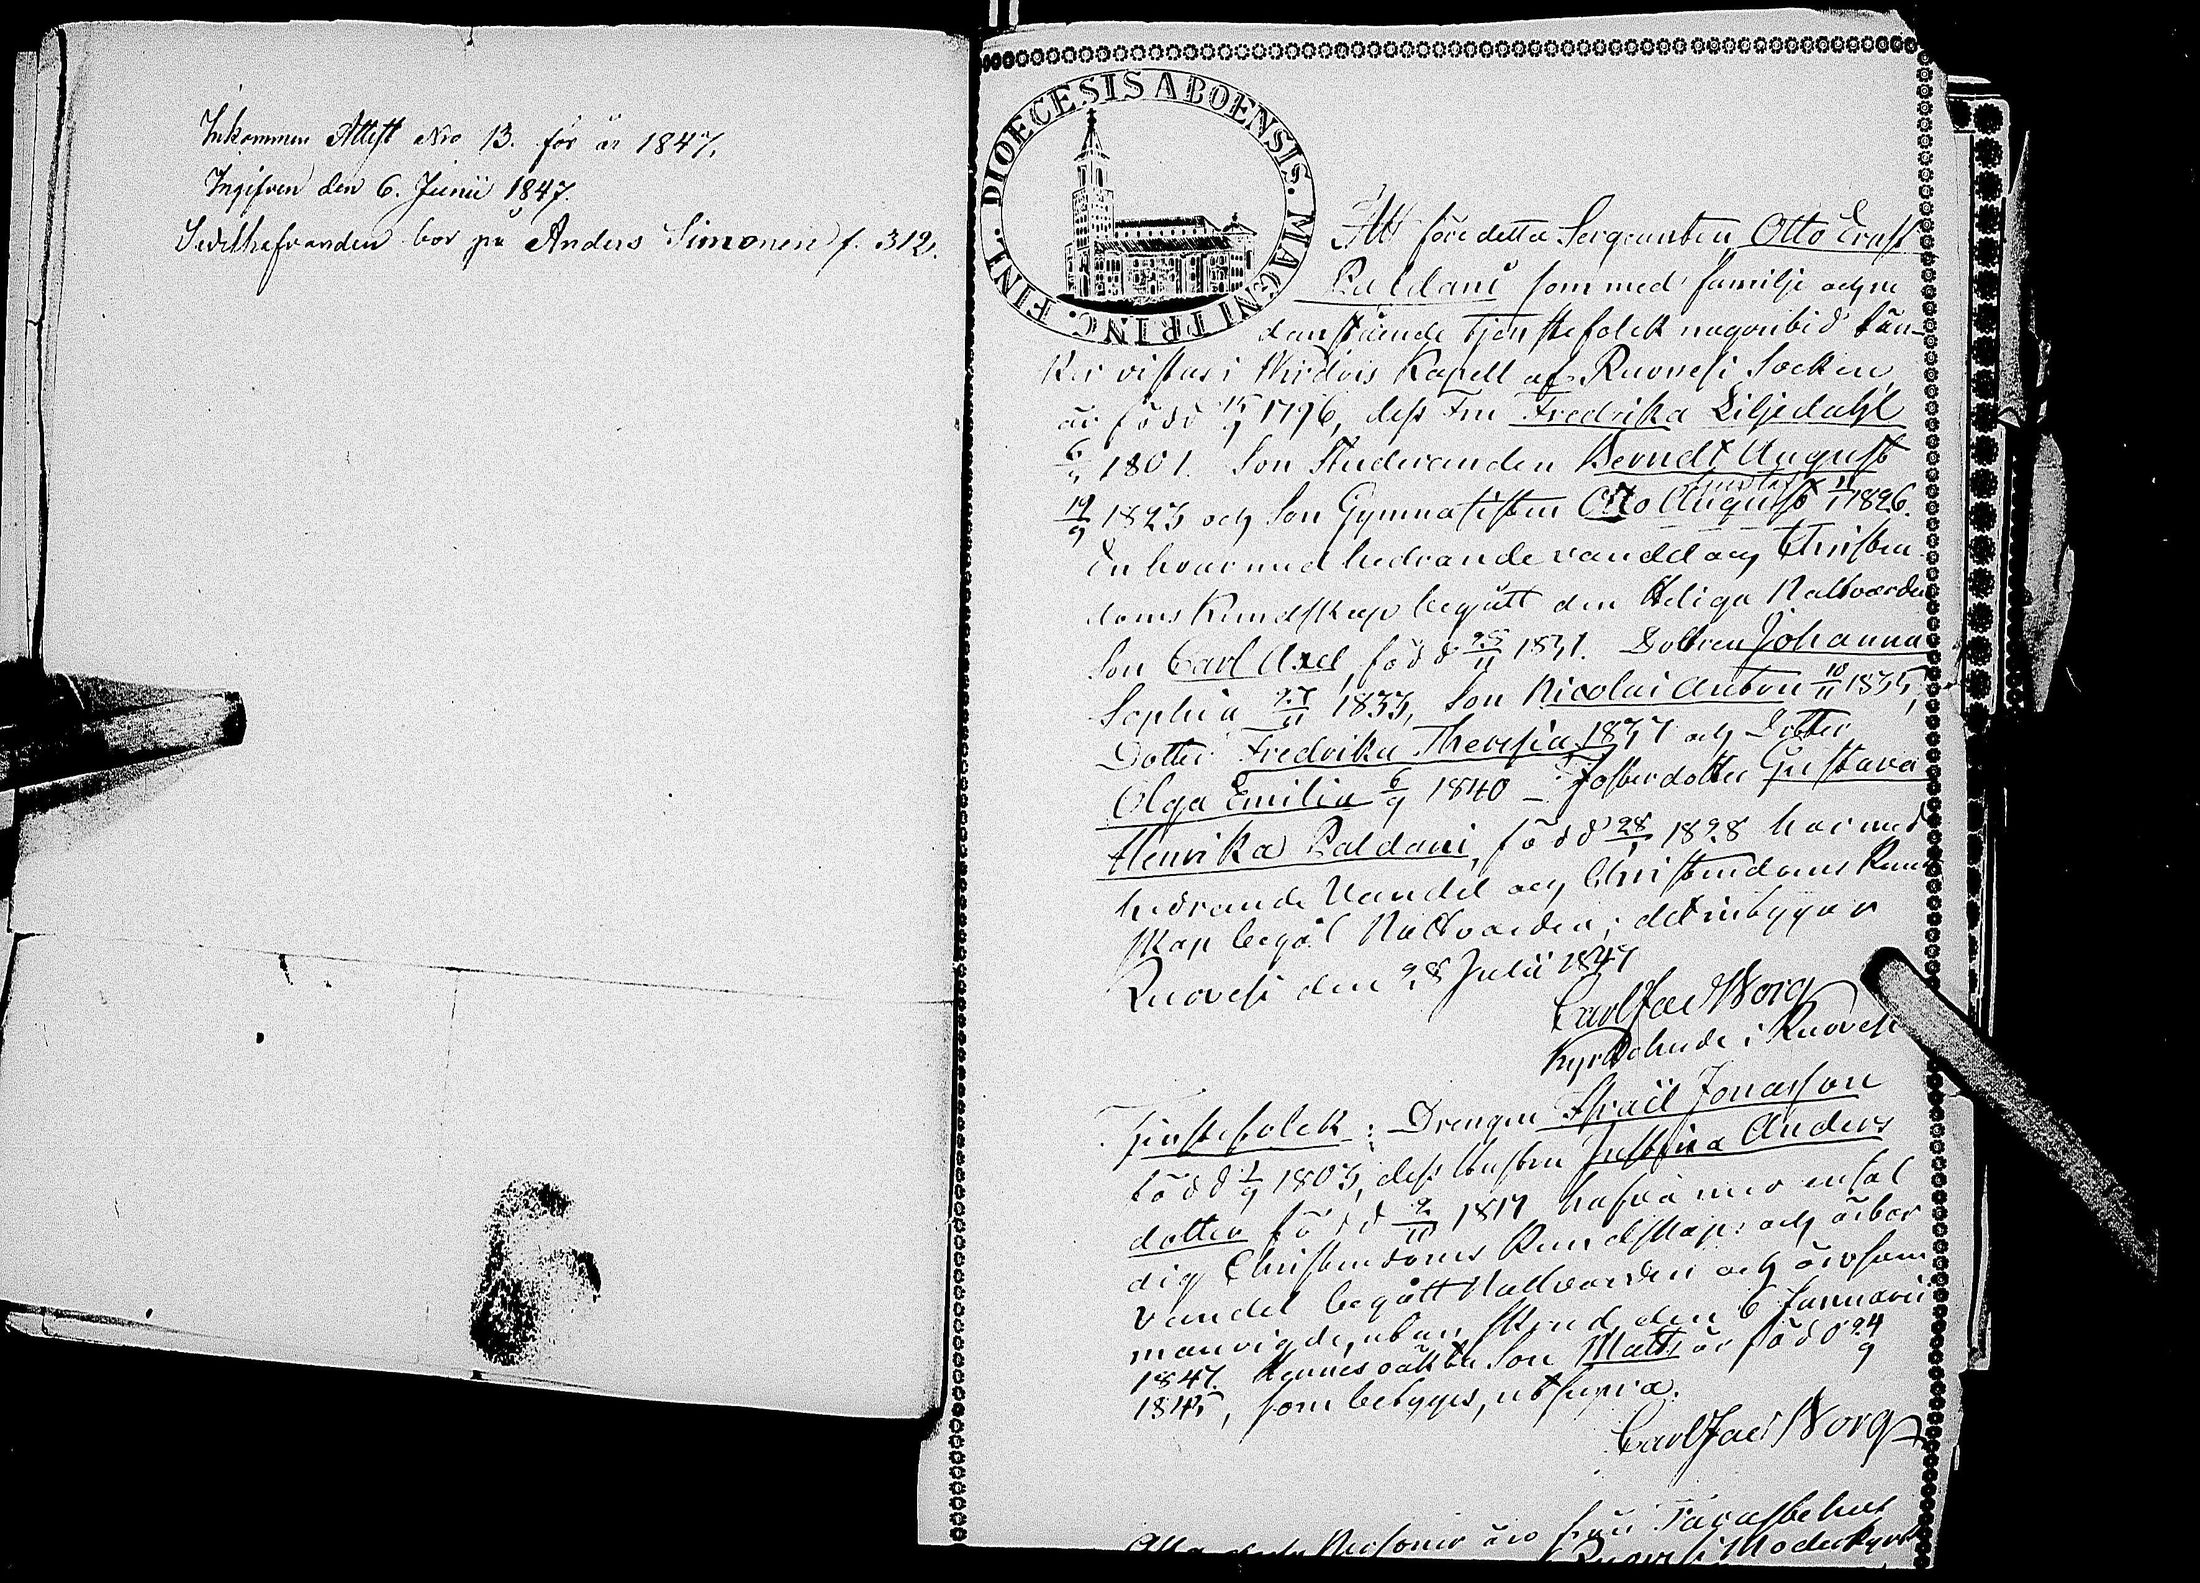 Inkommen Attest Nro 13. för år 1847.
Ingifven den 6. Junii 1847.
bor på Anders Simonen f. 312.
DIOECESIS ABOENSIS. MAGNI PRINC. FINL.
Att före detta Sergeanten Otto Ernst
Paldani som med familje och ne
danstående Tjenstefolck någon tid tän-
ker vistas i Kapell af Ruovesi Socken,
är född 1796, dess Fru Fredrika Liljedahl
1801. Son Studeranden Berndt August
19/9 1823 och Son Gymnasisten Otto August 1826.
En hvar med hedrande vandel och Christen-
doms Kundskap begått den Heliga Nattvarden
Son Carl Axel, född 25/11 1831. Dottren Johanna
Sophia 27/11 1833, Son Nicolai Anton 10/11 1835,
Dotter Fredrika Theresia 1837 och Dotter
Olga Emilia 6/9 1840 – Fosterdotter Gustava
Henrika Paldani, född 28/1 1828 har med
hedrande Vandel och Christendoms Kund
skap begått Nattvarden; det intygar
Ruovesi den 28 Julii 1847
Carl Jac Worg
Kyrkoherde i Ruovesi
Tjenstefolck: Drengen Israël Jonasson
född 1/9 1803, dess Hustru Justina Anders
dotter född 2/11 1817 hafva med enfal
dig Christendoms Kundskap och ärbar
vandel begått Nattvarden och äro sam
manvigde, utan den 6 Januarii
1847. Hennes oäkta Son Matts är född 24/9
1845, som betygas, ut supra.
Carl Jac Worg
Alla Personer äro från
Ruovesi Moderkyrk